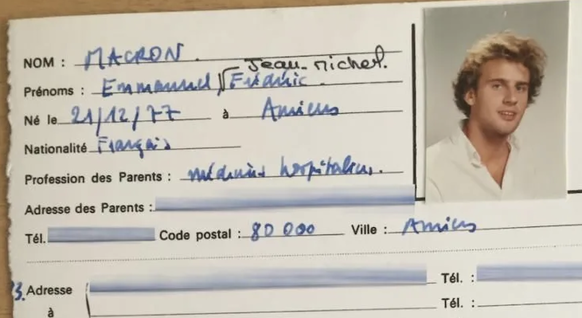 NOM : MACRON.
Jean-Michel.
Prénoms : Emmanuel √ Frédéric
Né le 21/12/77 à Amiens
Nationalité Français
Profession des Parents : médecins hospitaliers.
Adresse des Parents :
Tél. Code postal : 80 000 Ville : Amiens
3. Adresse Tél. :
à Tél. :